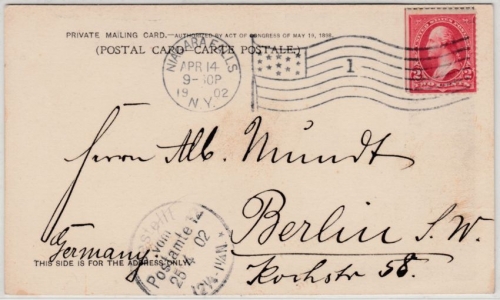 PRIVATE MAILING CARD.—AUTHORIZED BY ACT OF CONGRESS OF MAY 19, 1898.
(POSTAL CARD-CARTE POSTALE.)
NIAGARA FALLS
APR 14
9-30P
19 02
N.Y.
1
2 2
TWO CENTS
Herrn Alb. Mundt
Berlin S.W.
Germany
Kochstr 58.
vom
Postamte 12
25/4 02
THIS SIDE IS FOR THE ADDRESS ONLY.